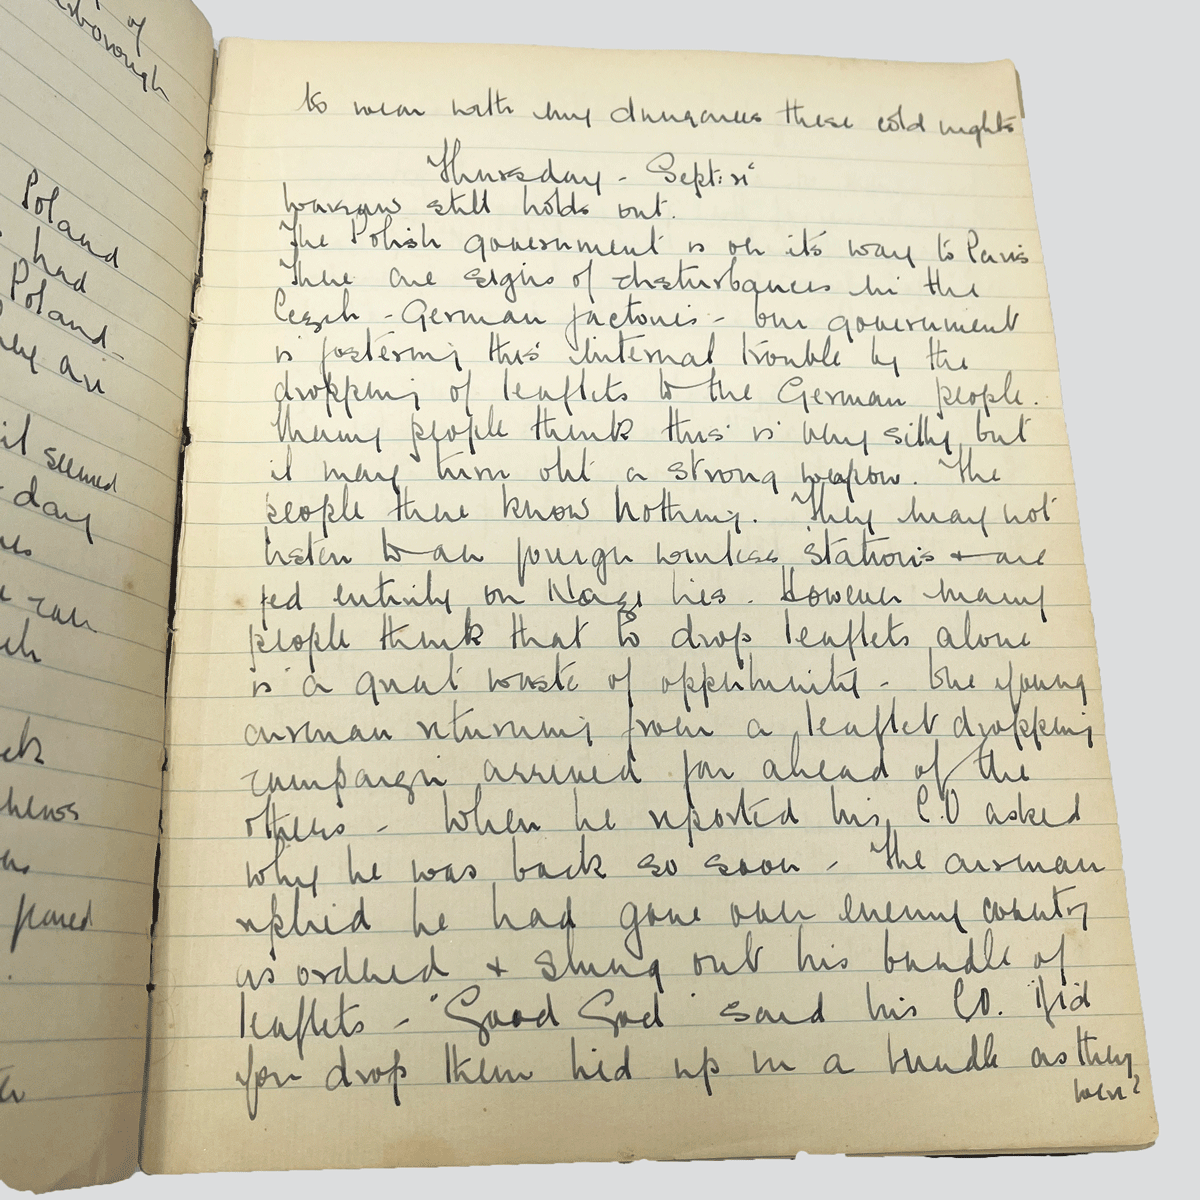 of
Poland
had
Poland-
they are
it seemed
day
can
news
to wear with my dungarees these cold nights
Thursday - Sept: 21st
Warsaw still holds out.
The Polish government is on its way to Paris
There are signs of disturbances in the
Czech - German factories - our government
is fostering this internal trouble by the
dropping of leaflets to the German people.
Many people think this is very silly but
it may turn out a strong weapon. The
people there know nothing. They may not
listen to an foreign wireless stations & are
fed entirely on Nazi lies. However many
people think that to drop leaflets alone
is a great waste of opportunity - One young
airman returning from a leaflet dropping
campaign arrived far ahead of the
others - When he reported his C.O asked
why he was back so soon - The airman
replied he had gone over enemy country
as ordered & slung out his bundle of
leaflets - "Good God" said his CO. "Did
you drop them tied up in a bundle as they
were?